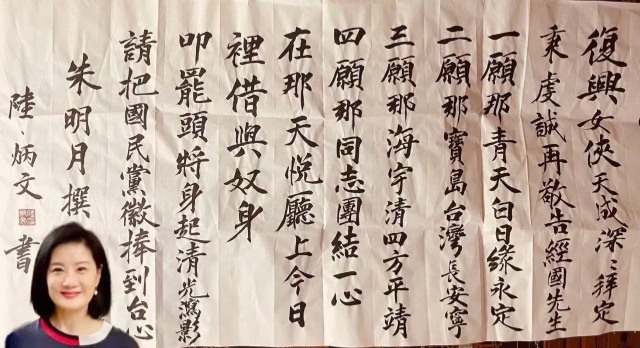 復興女俠天成深〻拜定
秉虔誠再敬告經國先生
一願那青天白日緣永定
二願那寶島台灣長安寧
三願那海宇清四方平靖
四願那同志團結一心
在那天悅廳上今日
裡借與奴身
叩罷頭將身起清光影
請把國民黨徽捧到台心
朱明月撰
陸、炳文書